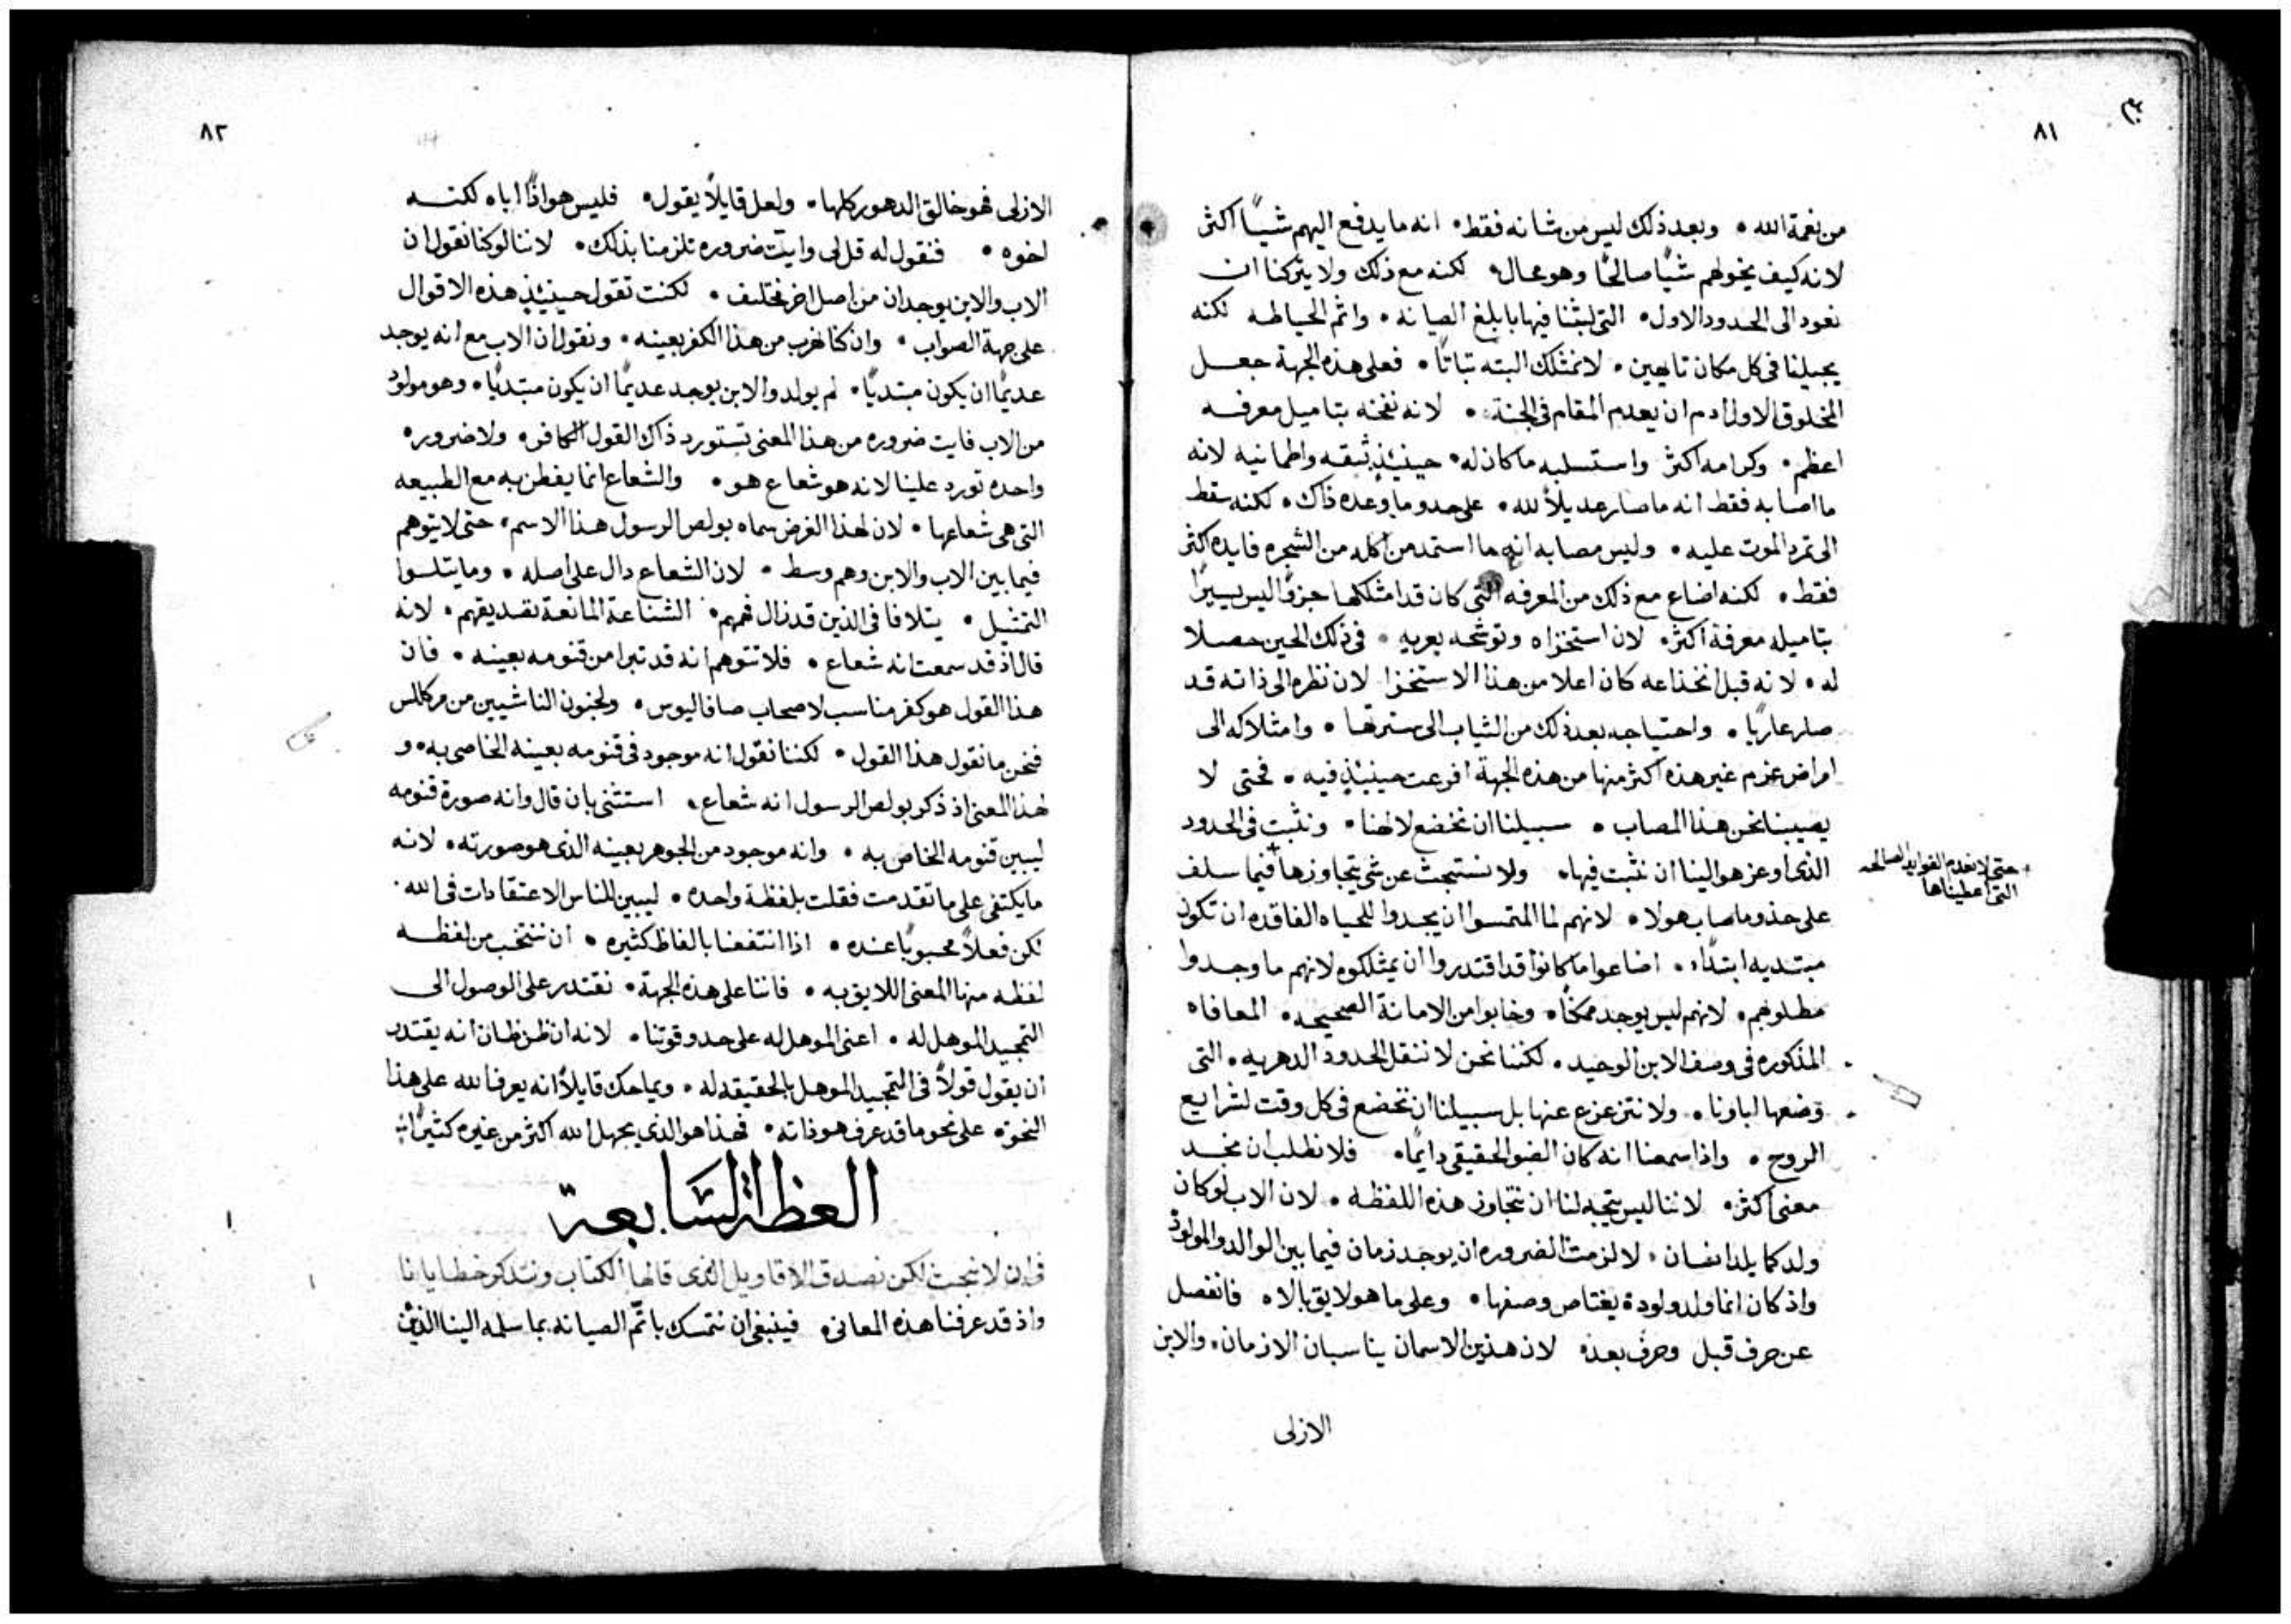 ٨١
من نعمة الله • وبعد ذلك ليس من شانه فقط • انه ما يدفع اليهم شيًا اكثر
لانه كيف يخولهم شيًا صالحًا وهو محال • لكنه مع ذلك ولا يتركنا ان
نعود الى الحدود الاول • التي لبثنا فيها بابلغ الصيانه • واتم الحياطه لكنه
يجعلنا في كل مكان تايهين • لا نمتلك البته ثباتًا • فعلى هذه الجهة جعل
المخلوق الاول ادم ان يعدم المقام في الجنة • لانه نفخه بتاميل معرفه
اعظم • وكرامه اكثر واستسلبه ما كان له • حينيذٍ ثبقه واطمانيه لانه
ما اصابه فقط انه ما صار عديلاً لله • على حدو ما وعده ذاك • لكنه سقط
الى تمرد الموت عليه • وليس مصابه انه ما استمد من اكله من الشجره فايده اكثر
فقط • لكنه اضاع مع ذلك من المعرفه التي كان قد امتلكها جزوًا ليس يسيرًا
بتاميله معرفة اكثر • لان استخزاه وتوشحه بعريه • في ذلك الحين حصلا
له • لانه قبل انخذاعه كان اعلا من هذا الاستخزا لان نظره الى ذاته قد
صار عاريًا • واحتياجه بعد ذلك من الثياب الى سترتها • وامتلاكه الى
امراض عزم غير هذه اكثر منها من هذه الجهة افرعت حينيذٍ فيه • فحتى لا
يصيبنا نحن هذا المصاب • سبيلنا ان نخضع لالهنا • ونثبت في الحدود
الذي اوعز هو الينا ان نثبت فيها • ولا نستبحث عن شي يتجاوزها + فيما سلف
+ حتى لا نعدم الفوايد الصالحه
التي اعطيناها
على حذو ما صاب هولا • لانهم لما التمسوا ان يجدوا للحياه الفاقده ان تكون
مبتديه ابتداء • اضاعوا ما كانوا قد اقتدروا ان يمتلكوه لانهم ما وجدوا
مطلوبهم • لانهم ليس يوجد ممكنًا • وخابوا من الامانة الصحيحه • المعافاه
المذكوره في وصف الابن الوحيد • لكننا نحن لا ننقل الحدود الدهريه • التي
وضعها اباونا • ولا نتزعزع عنها بل سبيلنا ان نخضع في كل وقت لشرايع
الروح • واذا سمعنا انه كان الضو الحقيقي دايمًا • فلا نطلب ان نجد
معنى اكثر • لاننا ليس يتجه لنا ان نتجاوز هذه اللفظه • لان الاب لو كان
ولد كما يلد انسان • لالزمت الضروره ان يوجد زمان فيما بين الوالد والمولود
واذ كان انما ولد ولودة يعتاص وصفها • وعلى ما هو لايق بالاه • فانفصل
عن حرف قبل وحرف بعد • لان هذين الاسمان يناسبان الازمان • والابن
الازلى
٨٢
الازلى فهو خالق الدهور كلها • ولعل قايلاً يقول • فليس هو اذًا اباه لكنه
اخوه • فنقول له قل لي وايّت ضروره تلزمنا بذلك • لاننا لو كنا نقول ان
الاب والابن يوجدان من اصل اخر مختلف • لكنت تقول حينيذٍ هذه الاقوال
على جهة الصواب • وان كنا نهرب من هذا الكفر بعينه • ونقول ان الاب مع انه يوجد
عديمًا ان يكون مبتديًا • لم يولد والابن يوجد عديمًا ان يكون مبتديًا • وهو مولود
من الاب فايت ضروره من هذا المعنى تستورد ذاك القول الكافر • ولا ضروره
واحده تورد علينا لانه هو شعاع هو • والشعاع انما يفطن به مع الطبيعه
التي هي شعاعها • لان لهذا الغرض سماه بولص الرسول هذا الاسم • حتى لا يتوهم
فيما بين الاب والابن وهم وسط • لان الشعاع دال على اصله • وما يتلوا
التمثيل • يتلافا في الذين قد زال فهمهم • الشناعة المانعة تصديقهم • لانه
قال اذ قد سمعت انه شعاع • فلا تتوهم انه قد تبرا من قنومه بعينه • فان
هذا القول هو كفر مناسب لاصحاب صافاليوس • ولجنون الناشيين من مركللس
فنحن ما نقول هذا القول • لكننا نقول انه موجود في قنومه بعينه الخاصي به • و
لهذا المعنى اذ ذكر بولص الرسول انه شعاع • استثنى بان قال وانه صورة قنومه
ليبين قنومه الخاص به • وانه موجود من الجوهر بعينه الذي هو صورته • لانه
ما يكتفي على ما تقدمت فقلت بلفظة واحده • ليبين للناس الاعتقادات في الله •
لكن فعلاً محبوبًا عنده • اذا انتفعنا بالفاظ كثيره • ان ننتخب من لفظه
لفظه منها المعنى اللايق به • فاننا على هذه الجهة • نقتدر على الوصول الى
التمجيد الموهل له • اعنى الموهل له على حدو قوتنا • لانه ان ظن ظان انه يقتدر
ان يقول قولاً في التمجيد الموهل بالحقيقه له • ويماحك قايلاً انه يعرف الله على هذا
النحو • على نحو ما قد عرف هو ذاته • فهذا هو الذي يجهل الله اكثر من غيره كثيرًا
العظة السابعة
في ان لا نبحث لكن نصدق الاقاويل الذي قالها الكتاب ونتذكر خطايانا
واذ قد عرفنا هذه المعاني • فينبغي ان نتمسك باتّم الصيانه بما سلمه الينا الذين